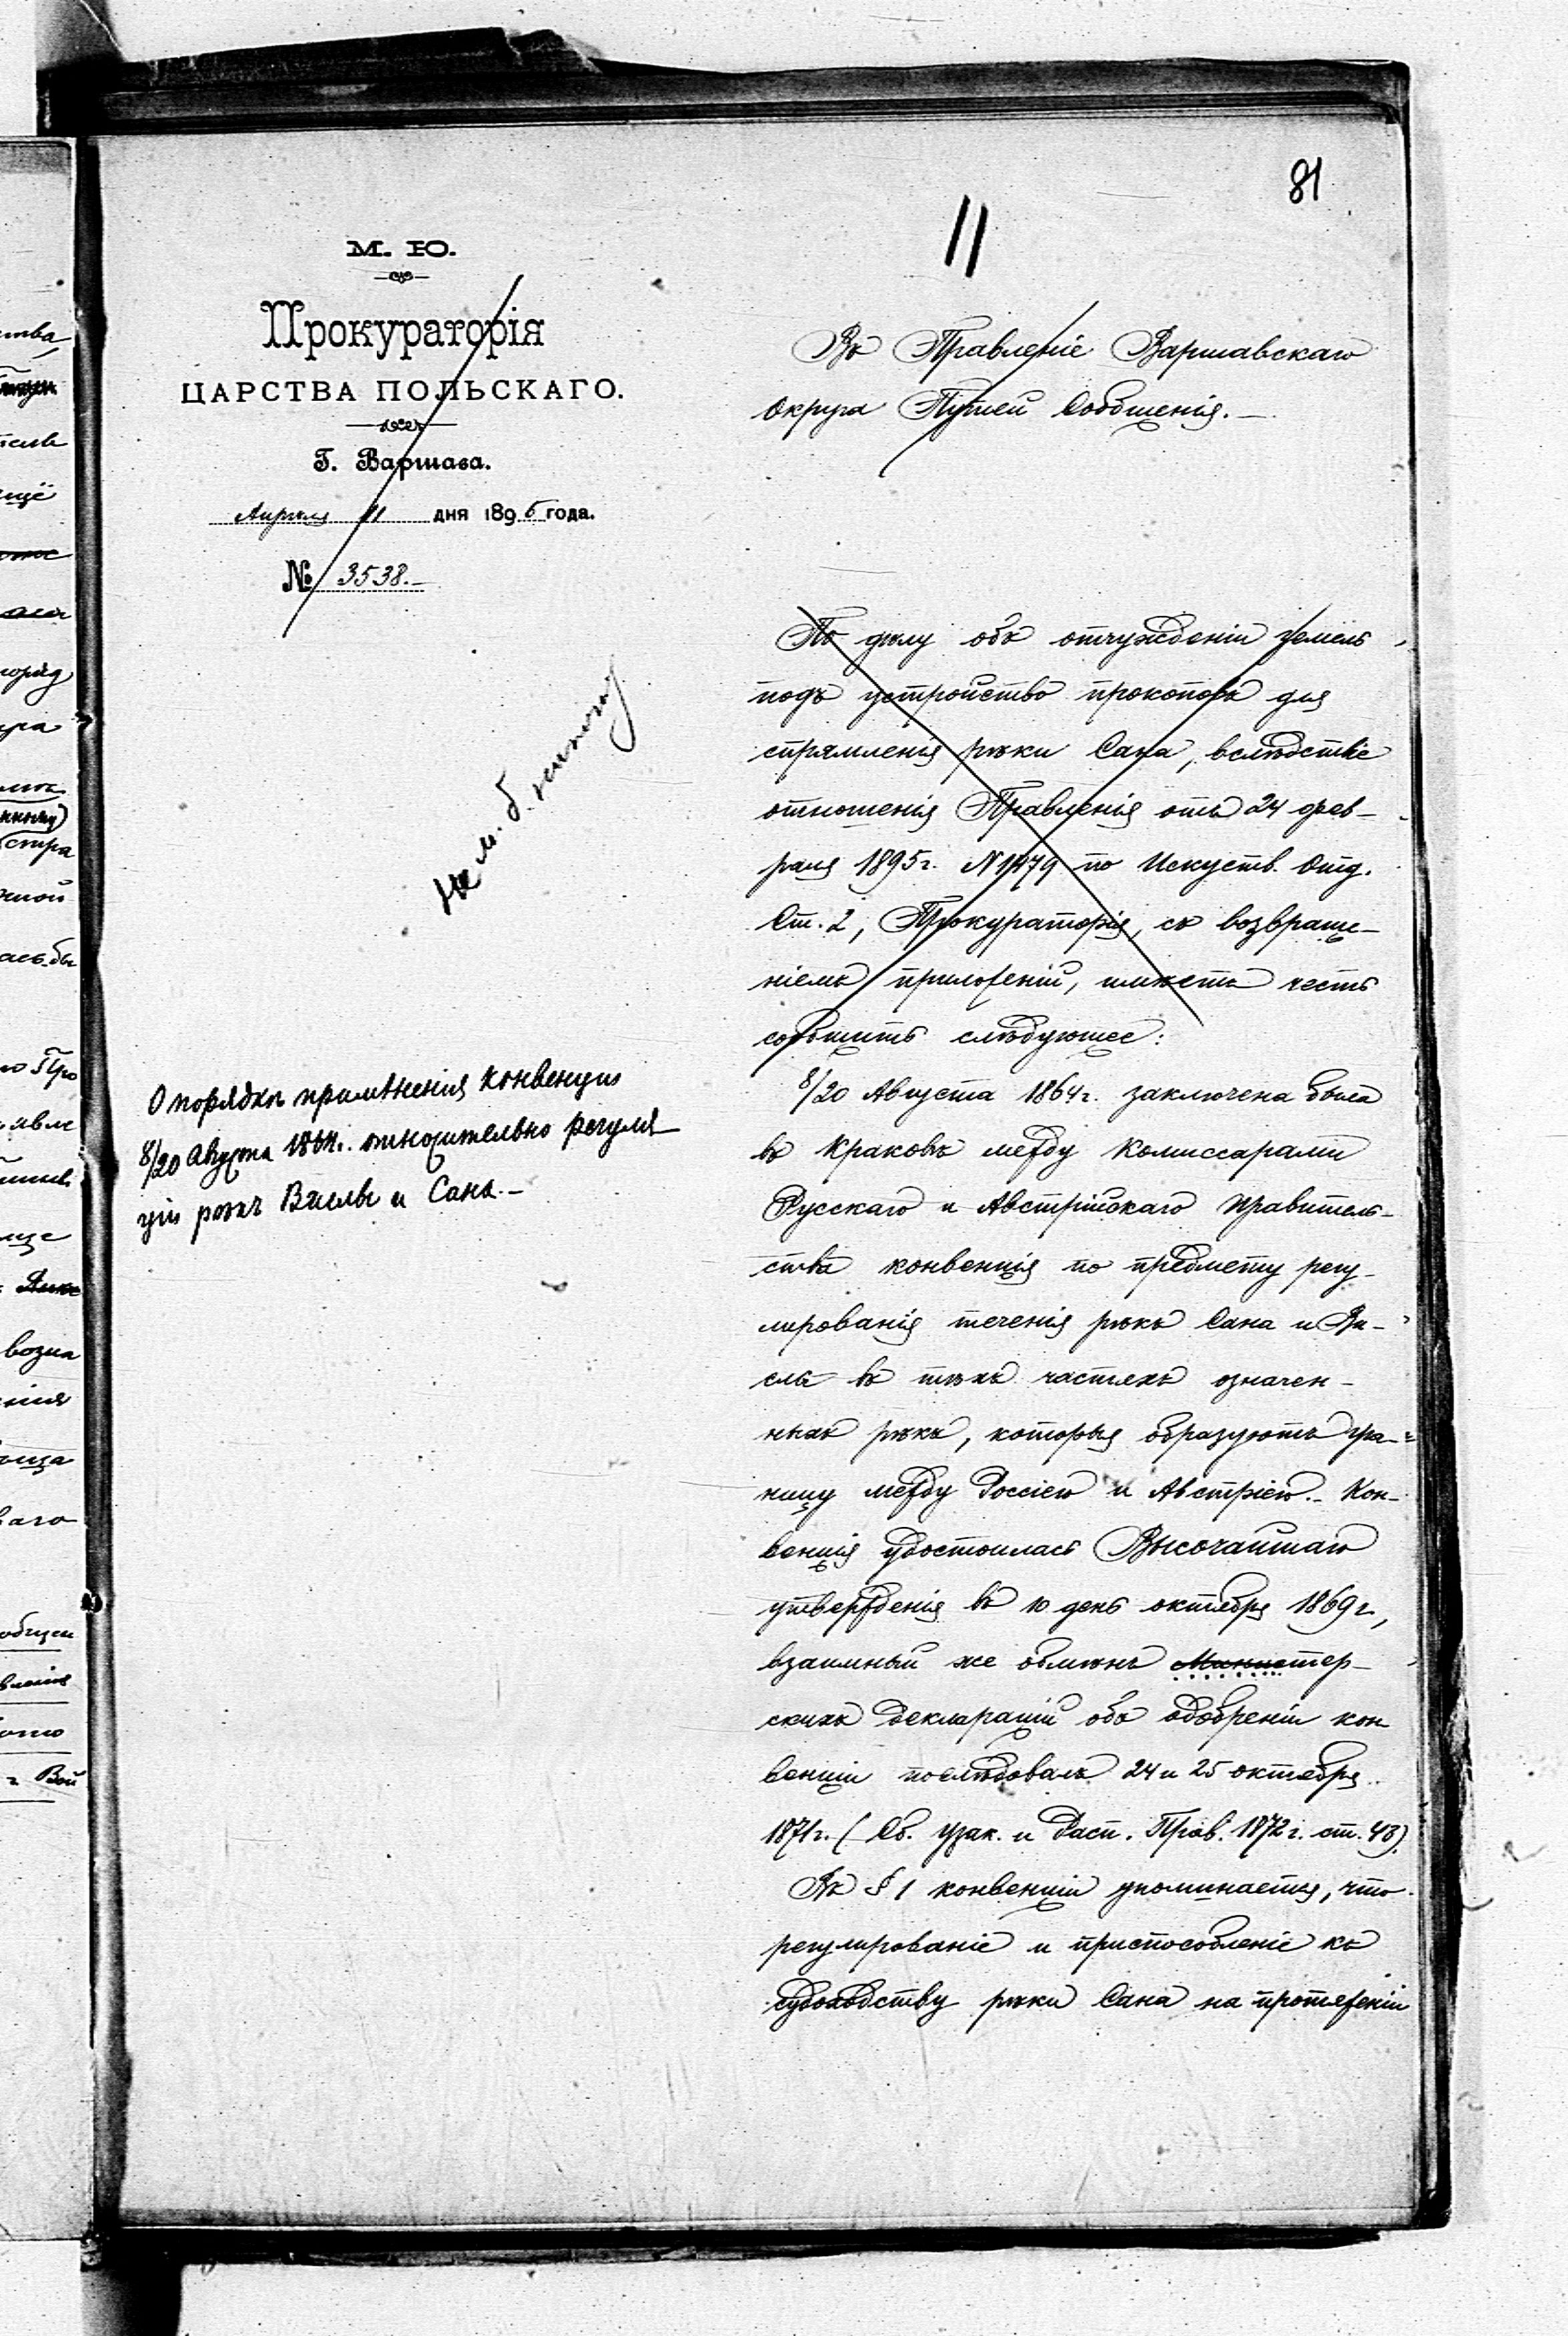 81
11
М. Ю.
Прокураторія
ЦАРСТВА ПОЛЬСКАГО.
Г. Варшава.
Апрѣля 11 дня 1895 года.
№ 3538.
Въ Правленіе Варшавскаго
Округа Путей Сообщенія.
По дѣлу объ отчужденіи земель
подъ устройство прокоповъ для
спрямленія рѣки Сана, вслѣдствіе
отношенія Правленія отъ 24 фев-
раля 1895 г. N 1479 по Искуств. Отд.
Ст. 2, Прокураторія, съ возвраще-
ніемъ приложеній, имѣетъ честь
сообщить слѣдующее:
О порядкѣ примѣненія конвенціи
8/20 Августа 1864 г. относительно регуля
ціи рѣкъ Вислы и Сана.-
8/20 Августа 1864 г. заключена была
въ Краковѣ между Комиссарами
Русскаго и Австрійскаго Правитель-
ства конвенція по предмету регу-
лированія теченія рѣкъ Сана и Ви-
слы въ тѣхъ частяхъ означен-
ныхъ рѣкъ, которыя образуютъ гра-
ницу между Россіею и Австріею.- Кон-
венція удостоилась Высочайшаго
утвержденія въ 10 день октября 1869 г.,
взаимный же обмѣнъ Министер-
скихъ деклараций объ одобреніи кон
венціи послѣдовалъ 24 и 25 октября
1871 г. (Сб. узак. и Расп. Прав. 1872 г. ст. 43).
Въ § 1 конвенціи упоминается, что
регулированіе и приспособленіе къ
судоходству рѣки Сана на протяженіи